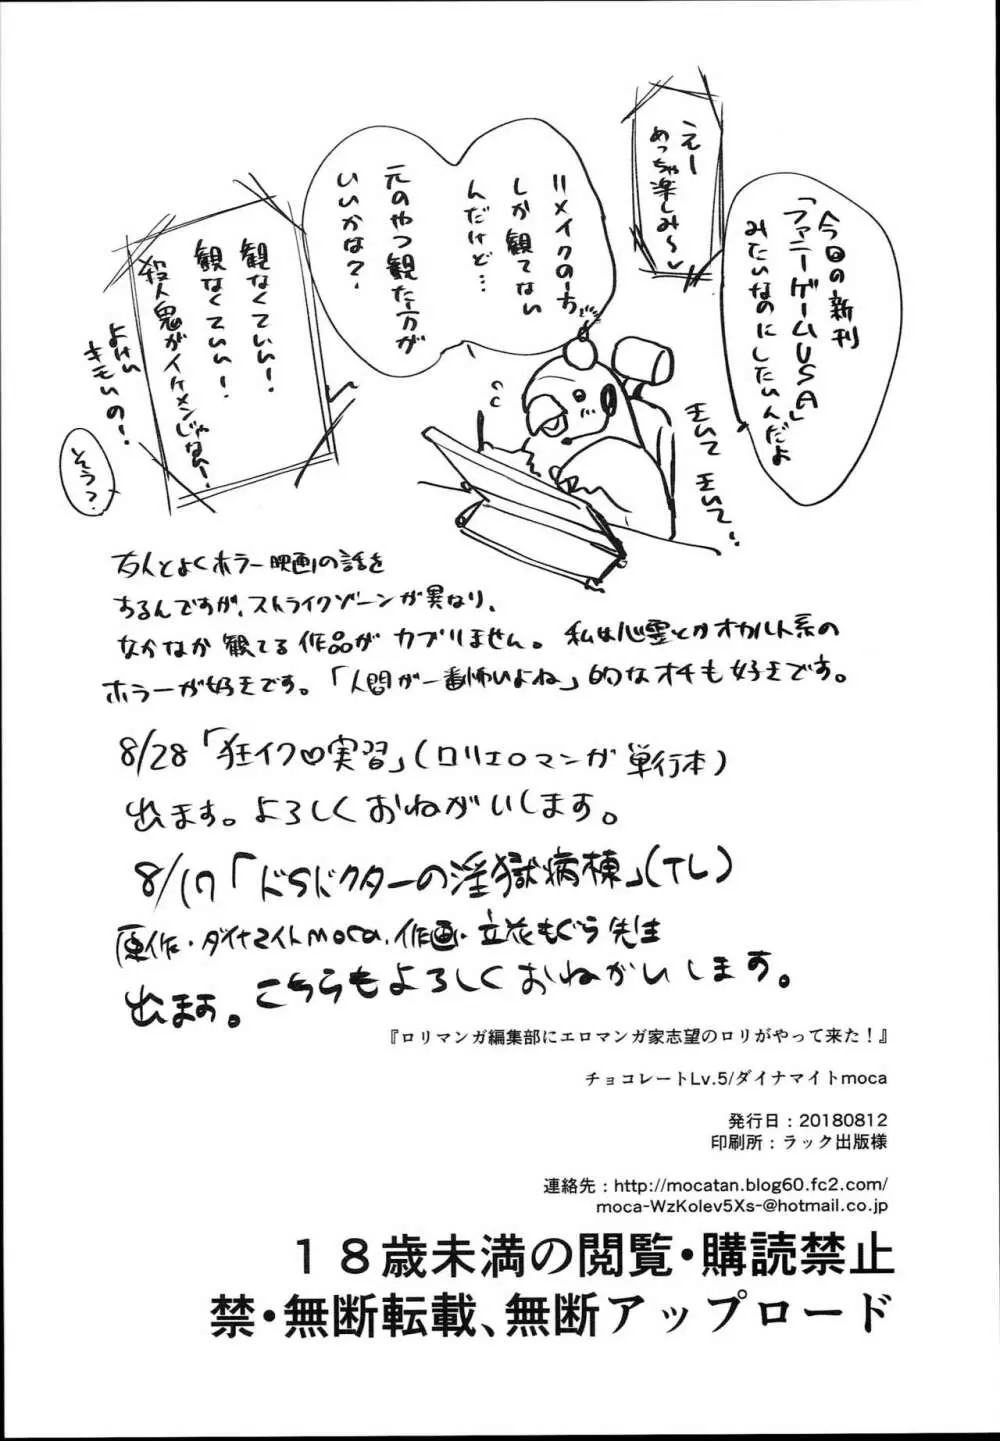 今回の新刊
「ファニーゲームUSA」
みたいなのにしたいんだよ
えー
めっちゃ楽しみ〜♡
リメイクの方
しか観てない
んだけど…
元のやつ観た方が
いいかな?
観なくていい!
観なくていい!
殺人鬼がイケメンじゃない!
よけい
キモいの!
そう?
友人とよくホラー映画の話を
するんですが、ストライクゾーンが異なり、
なかなか観てる作品がカブりません。私は心霊とかオカルト系の
ホラーが好きです。「人間が一番怖いよね」的なオチも好きです。
8/28「狂イク♡実習」(ロリエロマンガ単行本)
出ます。よろしくおねがいします。
8/17「ドSドクターの淫獄病棟」(TL)
原作・ダイナマイトmoca.作画・立花もぐら先生
出ます。こちらもよろしくおねがいします。
『ロリマンガ編集部にエロマンガ家志望のロリがやって来た!』
チョコレートLv.5/ダイナマイトmoca
発行日:20180812
印刷所:ラック出版様
連絡先:http://mocatan.blog60.fc2.com/
moca-WzKolev5Xs-@hotmail.co.jp
18歳未満の閲覧・購読禁止
禁・無断転載、無断アップロード